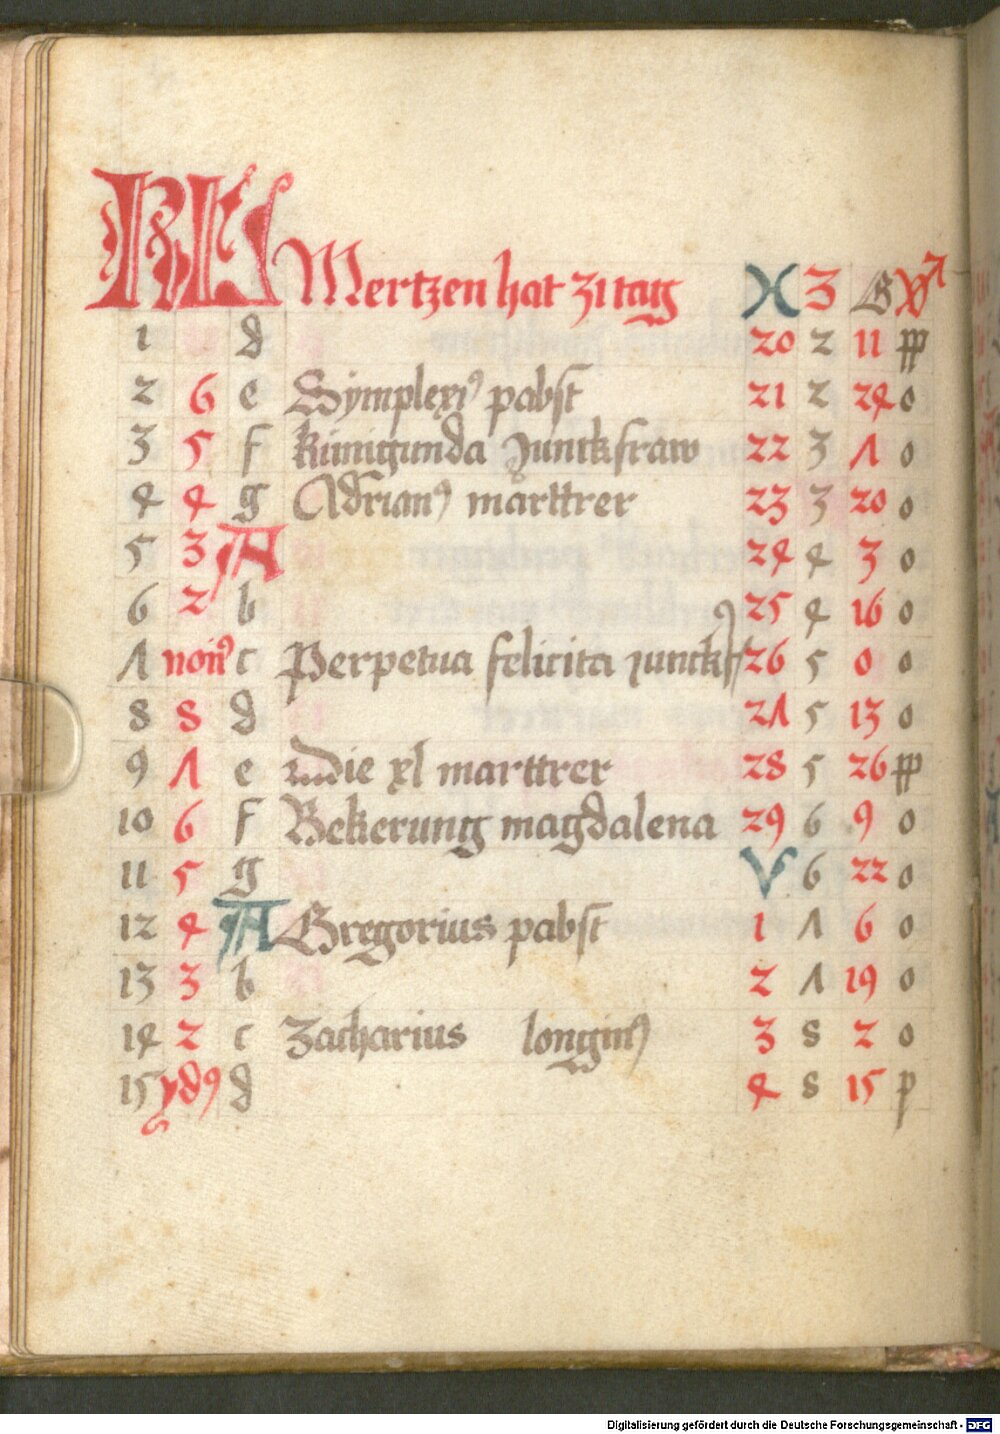 KL Mertzen hat 31 tag X 3 G
1 d 20 2 11 pp
2 6 e Symplexiꝰ pabst 21 2 24 0
3 5 f künigunda junckfraw 22 3 7 0
4 4 g Adrianꝰ marttrer 23 3 20 0
5 3 A 24 4 3 0
6 2 b 25 4 16 0
7 nonꝰ c Perpetua felicita junckf 26 5 0 0
8 8 d 27 5 13 0
9 7 e Die xl marttrer 28 5 26 pp
10 6 f Bekerung magdalena 29 6 9 0
11 5 g V 6 22 0
12 4 A Gregorius pabst 1 7 6 0
13 3 b 2 7 19 0
14 2 c Zacharius longinꝰ 3 8 2 0
15 ydꝰ d 4 8 15 p
Digitalisierung gefördert durch die Deutsche Forschungsgemeinschaft - DFG